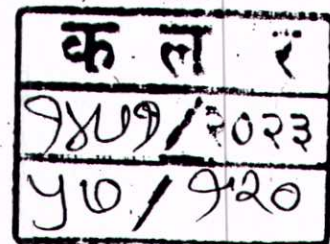 क ल र
१४७१/२०२३
५७/१२०